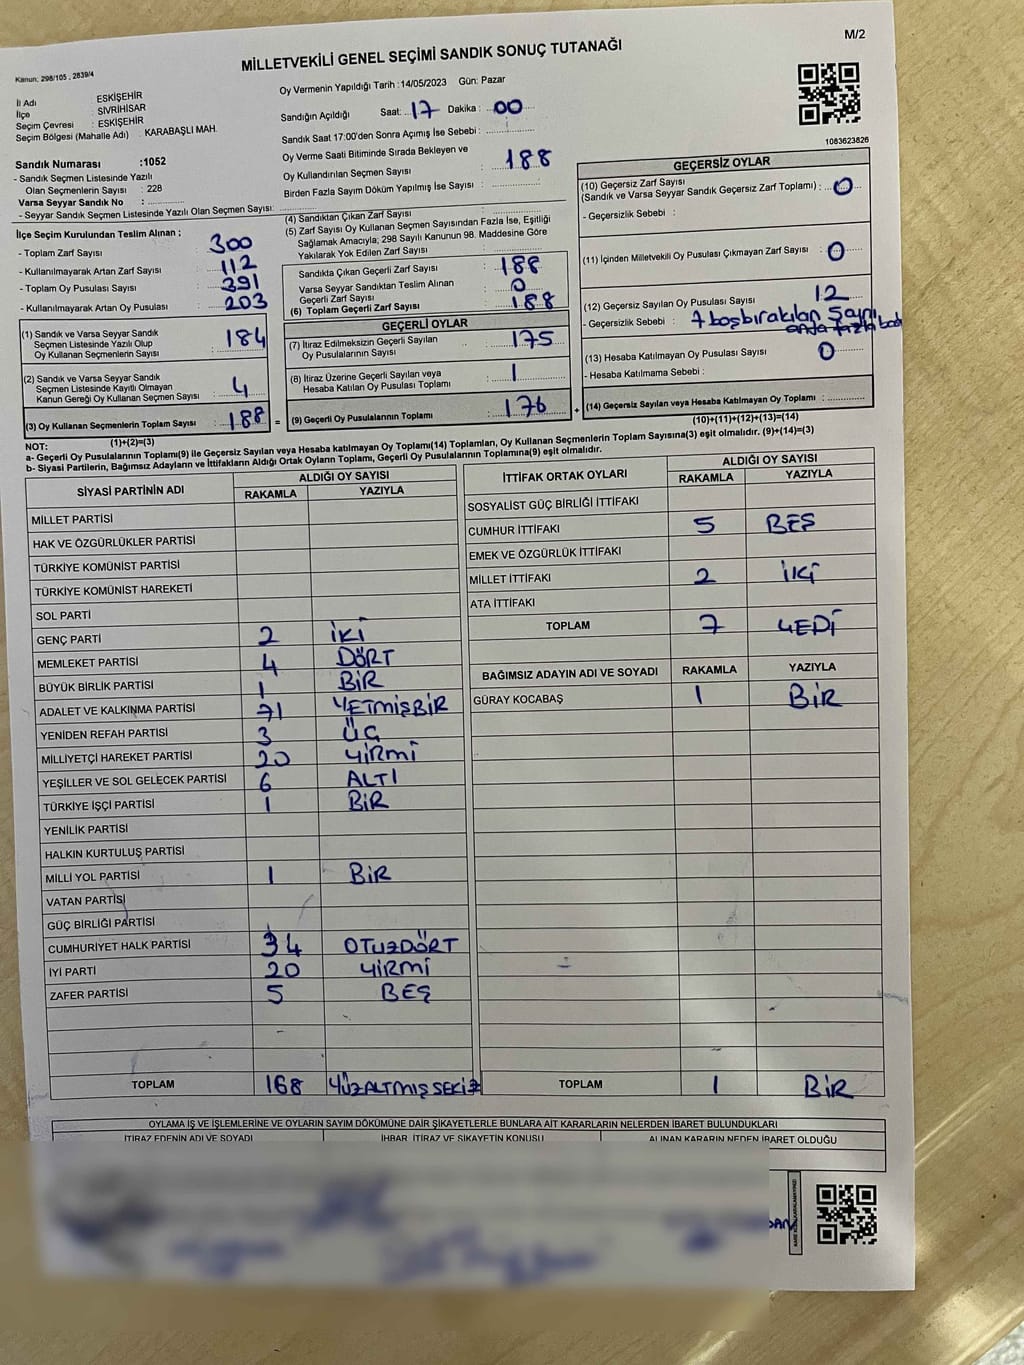 M/2
MİLLETVEKİLİ GENEL SEÇİMİ SANDIK SONUÇ TUTANAĞI
Kanun; 298/105 , 2839/4
İl Adı : ESKİŞEHİR
İlçe : SİVRİHİSAR
Seçim Çevresi : ESKİŞEHİR
Seçim Bölgesi (Mahalle Adı) : KARABAŞLI MAH.
Sandık Numarası :1052
- Sandık Seçmen Listesinde Yazılı
Olan Seçmenlerin Sayısı : 228
Varsa Seyyar Sandık No :
- Seyyar Sandık Seçmen Listesinde Yazılı Olan Seçmen Sayısı:
Oy Vermenin Yapıldığı Tarih :14/05/2023 Gün: Pazar
Sandığın Açıldığı Saat: 17 Dakika : 00
Sandık Saat 17:00'den Sonra Açımış İse Sebebi :
Oy Verme Saati Bitiminde Sırada Bekleyen ve
Oy Kullandırılan Seçmen Sayısı : 188
Birden Fazla Sayım Döküm Yapılmış İse Sayısı :
1083623826
İlçe Seçim Kurulundan Teslim Alınan ;
- Toplam Zarf Sayısı : 300
- Kullanılmayarak Artan Zarf Sayısı : 112
- Toplam Oy Pusulası Sayısı : 391
- Kullanılmayarak Artan Oy Pusulası : 203
(1) Sandık ve Varsa Seyyar Sandık
Seçmen Listesinde Yazılı Olup
Oy Kullanan Seçmenlerin Sayısı : 184
(2) Sandık ve Varsa Seyyar Sandık
Seçmen Listesinde Kayıtlı Olmayan
Kanun Gereği Oy Kullanan Seçmen Sayısı : 4
(3) Oy Kullanan Seçmenlerin Toplam Sayısı : 188 =
(1)+(2)=(3)
(4) Sandıktan Çıkan Zarf Sayısı :
(5) Zarf Sayısı Oy Kullanan Seçmen Sayısından Fazla İse, Eşitliği
Sağlamak Amacıyla; 298 Sayılı Kanunun 98. Maddesine Göre
Yakılarak Yok Edilen Zarf Sayısı :
Sandıkta Çıkan Geçerli Zarf Sayısı : 188
Varsa Seyyar Sandıktan Teslim Alınan
Geçerli Zarf Sayısı : 0
(6) Toplam Geçerli Zarf Sayısı : 188
GEÇERLİ OYLAR
(7) İtiraz Edilmeksizin Geçerli Sayılan
Oy Pusulalarının Sayısı : 175
(8) İtiraz Üzerine Geçerli Sayılan veya
Hesaba Katılan Oy Pusulası Toplamı : 1
(9) Geçerli Oy Pusulalarının Toplamı : 176 +
GEÇERSİZ OYLAR
(10) Geçersiz Zarf Sayısı
(Sandık ve Varsa Seyyar Sandık Geçersiz Zarf Toplamı) : 0
- Geçersizlik Sebebi :
(11) İçinden Milletvekili Oy Pusulası Çıkmayan Zarf Sayısı : 0
(12) Geçersiz Sayılan Oy Pusulası Sayısı : 12
- Geçersizlik Sebebi : 7 boşbırakılan
(13) Hesaba Katılmayan Oy Pusulası Sayısı : 0
- Hesaba Katılmama Sebebi :
(14) Geçersiz Sayılan veya Hesaba Katılmayan Oy Toplamı :
(10)+(11)+(12)+(13)=(14)
NOT:
a- Geçerli Oy Pusulasının Toplamı(9) ile Geçersiz Sayılan veya Hesaba katılmayan Oy Toplamı(14) Toplamları, Oy Kullanan Seçmenlerin Toplam Sayısına(3) eşit olmalıdır. (9)+(14)=(3)
b- Siyasi Partilerin, Bağımsız Adayların ve İttifakların Aldığı Ortak Oyların Toplamı, Geçerli Oy Pusulalarının Toplamına(9) eşit olmalıdır.
SİYASİ PARTİNİN ADI ALDIĞI OY SAYISI
RAKAMLA YAZIYLA
MİLLET PARTİSİ
HAK VE ÖZGÜRLÜKLER PARTİSİ
TÜRKİYE KOMÜNİST PARTİSİ
TÜRKİYE KOMÜNİST HAREKETİ
SOL PARTİ
GENÇ PARTİ 2 İKİ
MEMLEKET PARTİSİ 4 DÖRT
BÜYÜK BİRLİK PARTİSİ 1 BİR
ADALET VE KALKINMA PARTİSİ 71 YETMİŞBİR
YENİDEN REFAH PARTİSİ 3 ÜÇ
MİLLİYETÇİ HAREKET PARTİSİ 20 YİRMİ
YEŞİLLER VE SOL GELECEK PARTİSİ 6 ALTI
TÜRKİYE İŞÇİ PARTİSİ 1 BİR
YENİLİK PARTİSİ
HALKIN KURTULUŞ PARTİSİ
MİLLİ YOL PARTİSİ 1 BİR
VATAN PARTİSİ
GÜÇ BİRLİĞİ PARTİSİ
CUMHURİYET HALK PARTİSİ 34 OTUZDÖRT
İYİ PARTİ 20 YİRMİ
ZAFER PARTİSİ 5 BEŞ
TOPLAM 168 YÜZALTMIŞSEKİZ
İTTİFAK ORTAK OYLARI ALDIĞI OY SAYISI
RAKAMLA YAZIYLA
SOSYALİST GÜÇ BİRLİĞİ İTTİFAKI
CUMHUR İTTİFAKI 5 BEŞ
EMEK VE ÖZGÜRLÜK İTTİFAKI
MİLLET İTTİFAKI 2 İKİ
ATA İTTİFAKI
TOPLAM 7 YEDİ
BAĞIMSIZ ADAYIN ADI VE SOYADI RAKAMLA YAZIYLA
GÜRAY KOCABAŞ 1 BİR
TOPLAM 1 BİR
OYLAMA İŞ VE İŞLEMLERİNE VE OYLARIN SAYIM DÖKÜMÜNE DAİR ŞİKAYETLERLE BUNLARA AİT KARARLARIN NELERDEN İBARET BULUNDUKLARI
İTİRAZ EDENİN ADI VE SOYADI İHBAR, İTİRAZ VE ŞİKAYETİN KONUSU ALINAN KARARIN NEDEN İBARET OLDUĞU